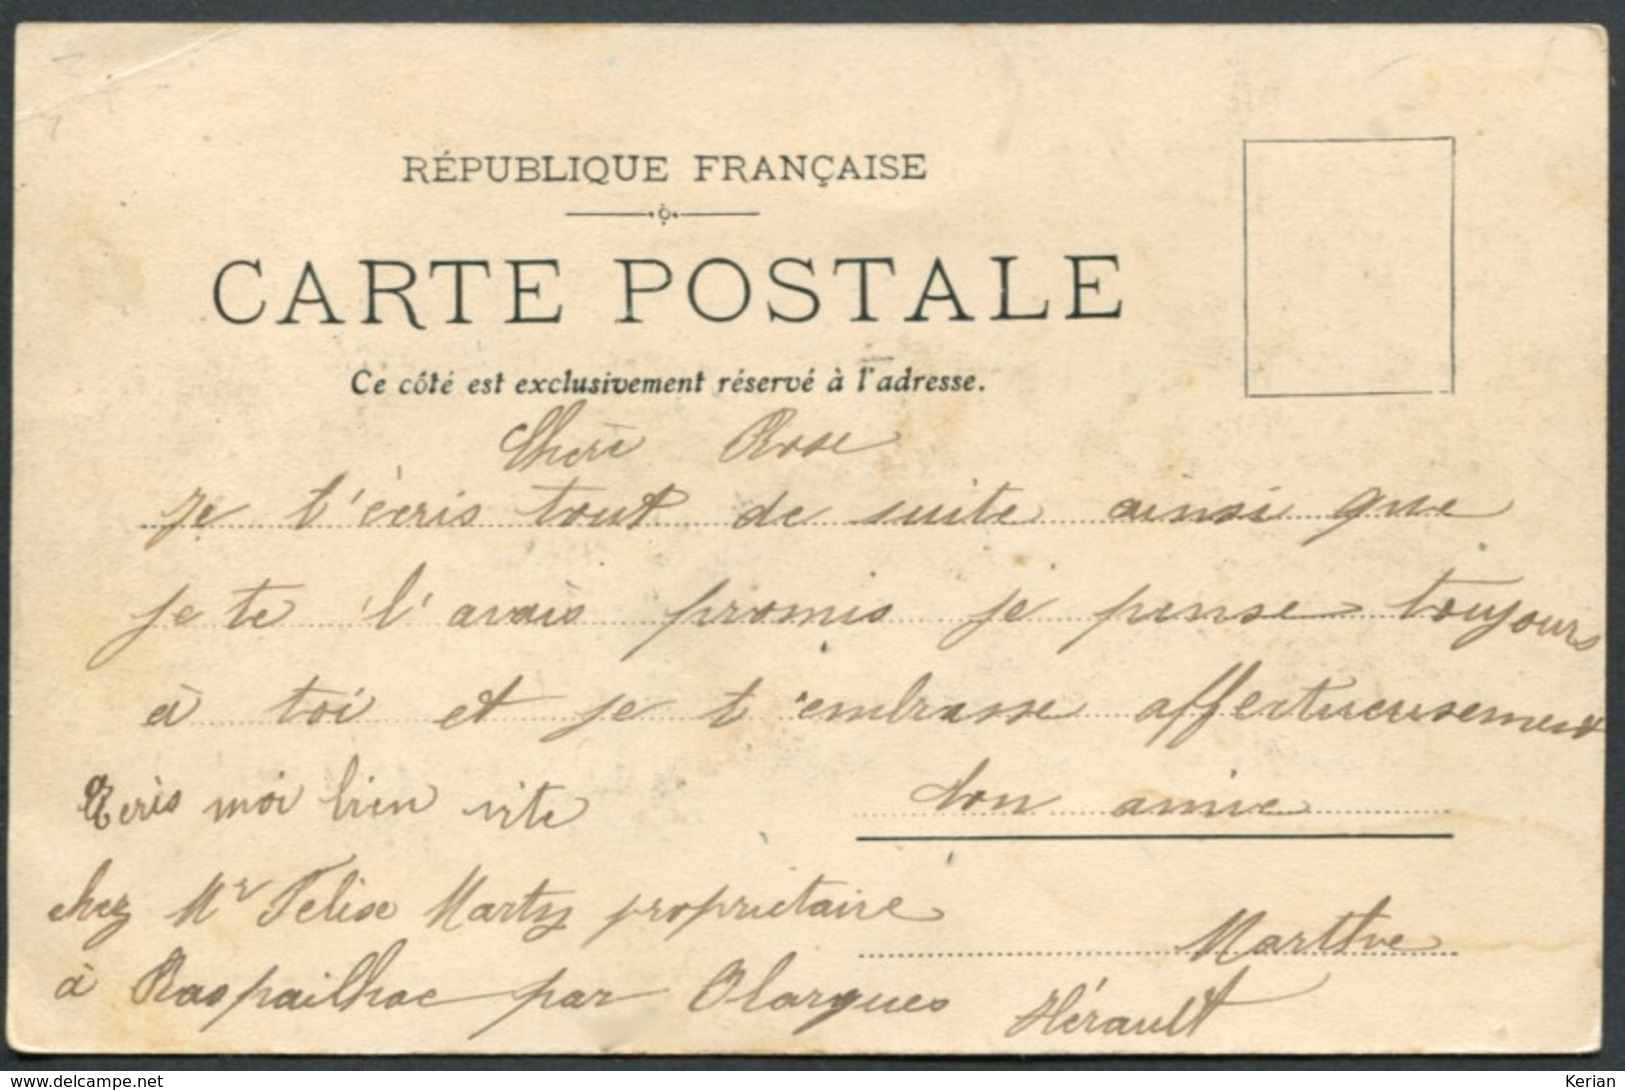 RÉPUBLIQUE FRANÇAISE
CARTE POSTALE
Ce côté est exclusivement réservé à l'adresse.
Chère Rose
Je t'écris tout de suite ainsi que
je te l'avais promis je pense toujours
à toi et je t'embrasse affectueusement
Ecris moi bien vite
ton amie
chez Mr Felix Marty propriétaire
Marthe
à Raspailhac par Olargues Hérault
www.delcampe.net
Kerian